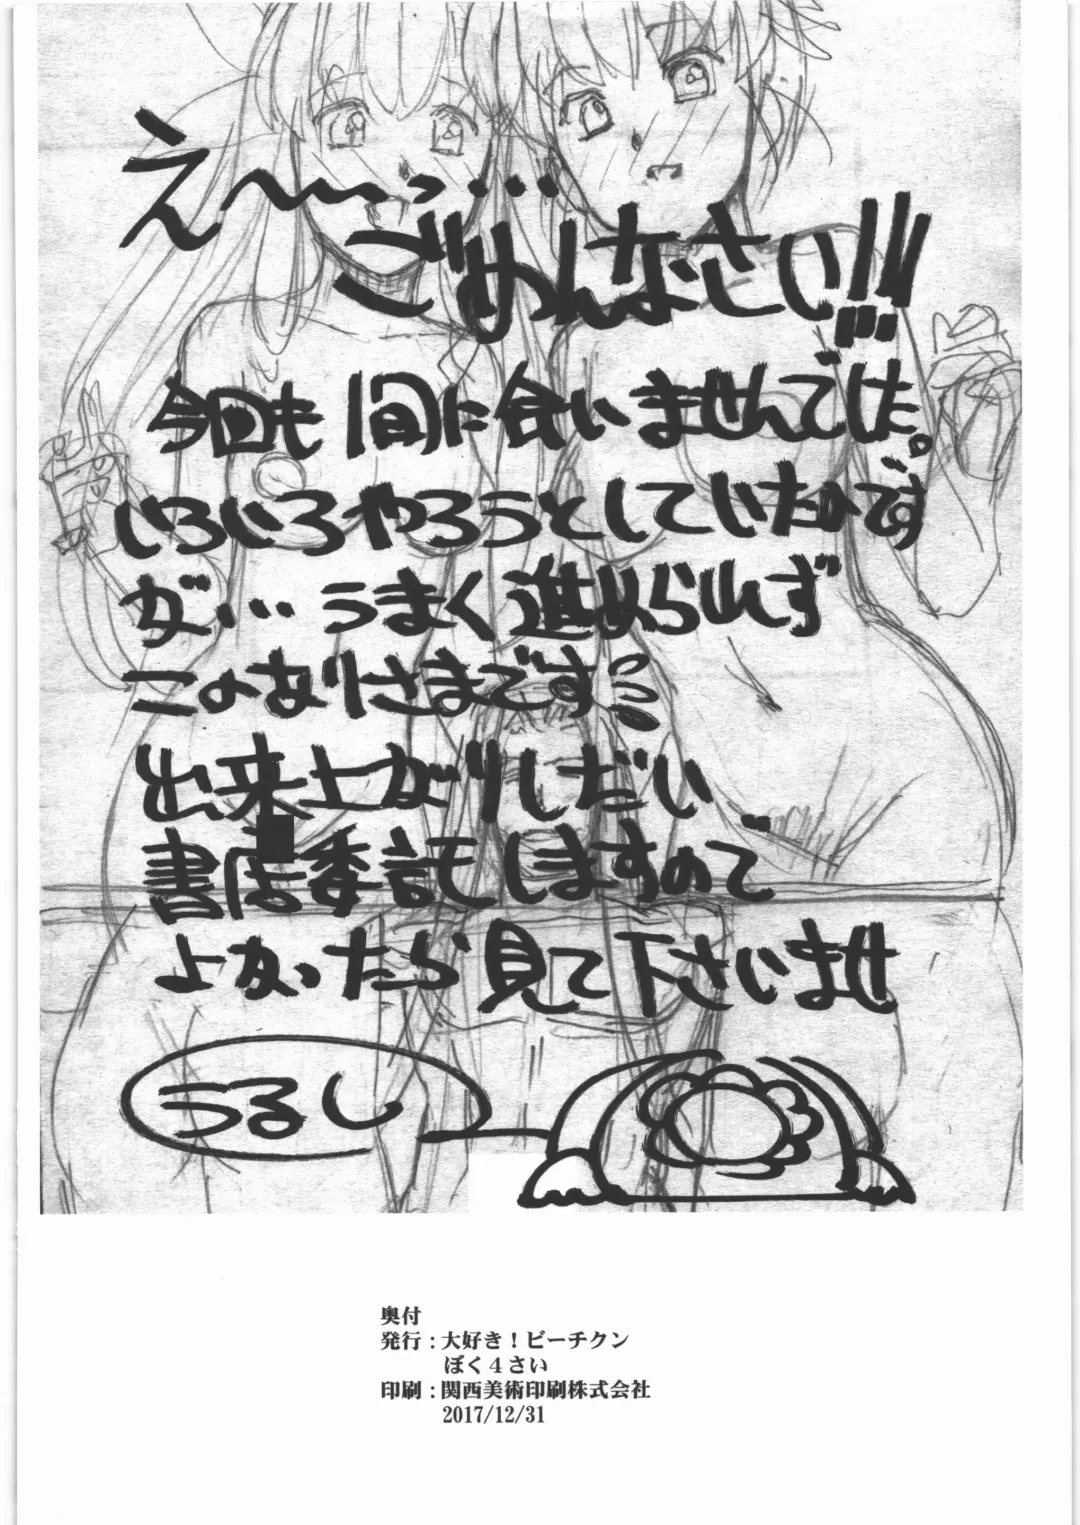 え〜〜っ・・・
ごめんなさい!!!
今回も間に合いませんでした。
いろいろやろうとしていたのです
が… うまく進められず
このありさまです
出来上がりしだい
書店委託しますので
よかったら見て下さいませ
うるし
奥付
発行：大好き！ビーチクン
ぼく４さい
印刷：関西美術印刷株式会社
2017/12/31